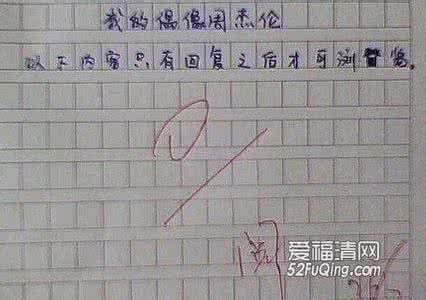 我的偶像周杰伦
以下内容只有回复之后才可浏览。
阅
爱福清网
52FuQing.com